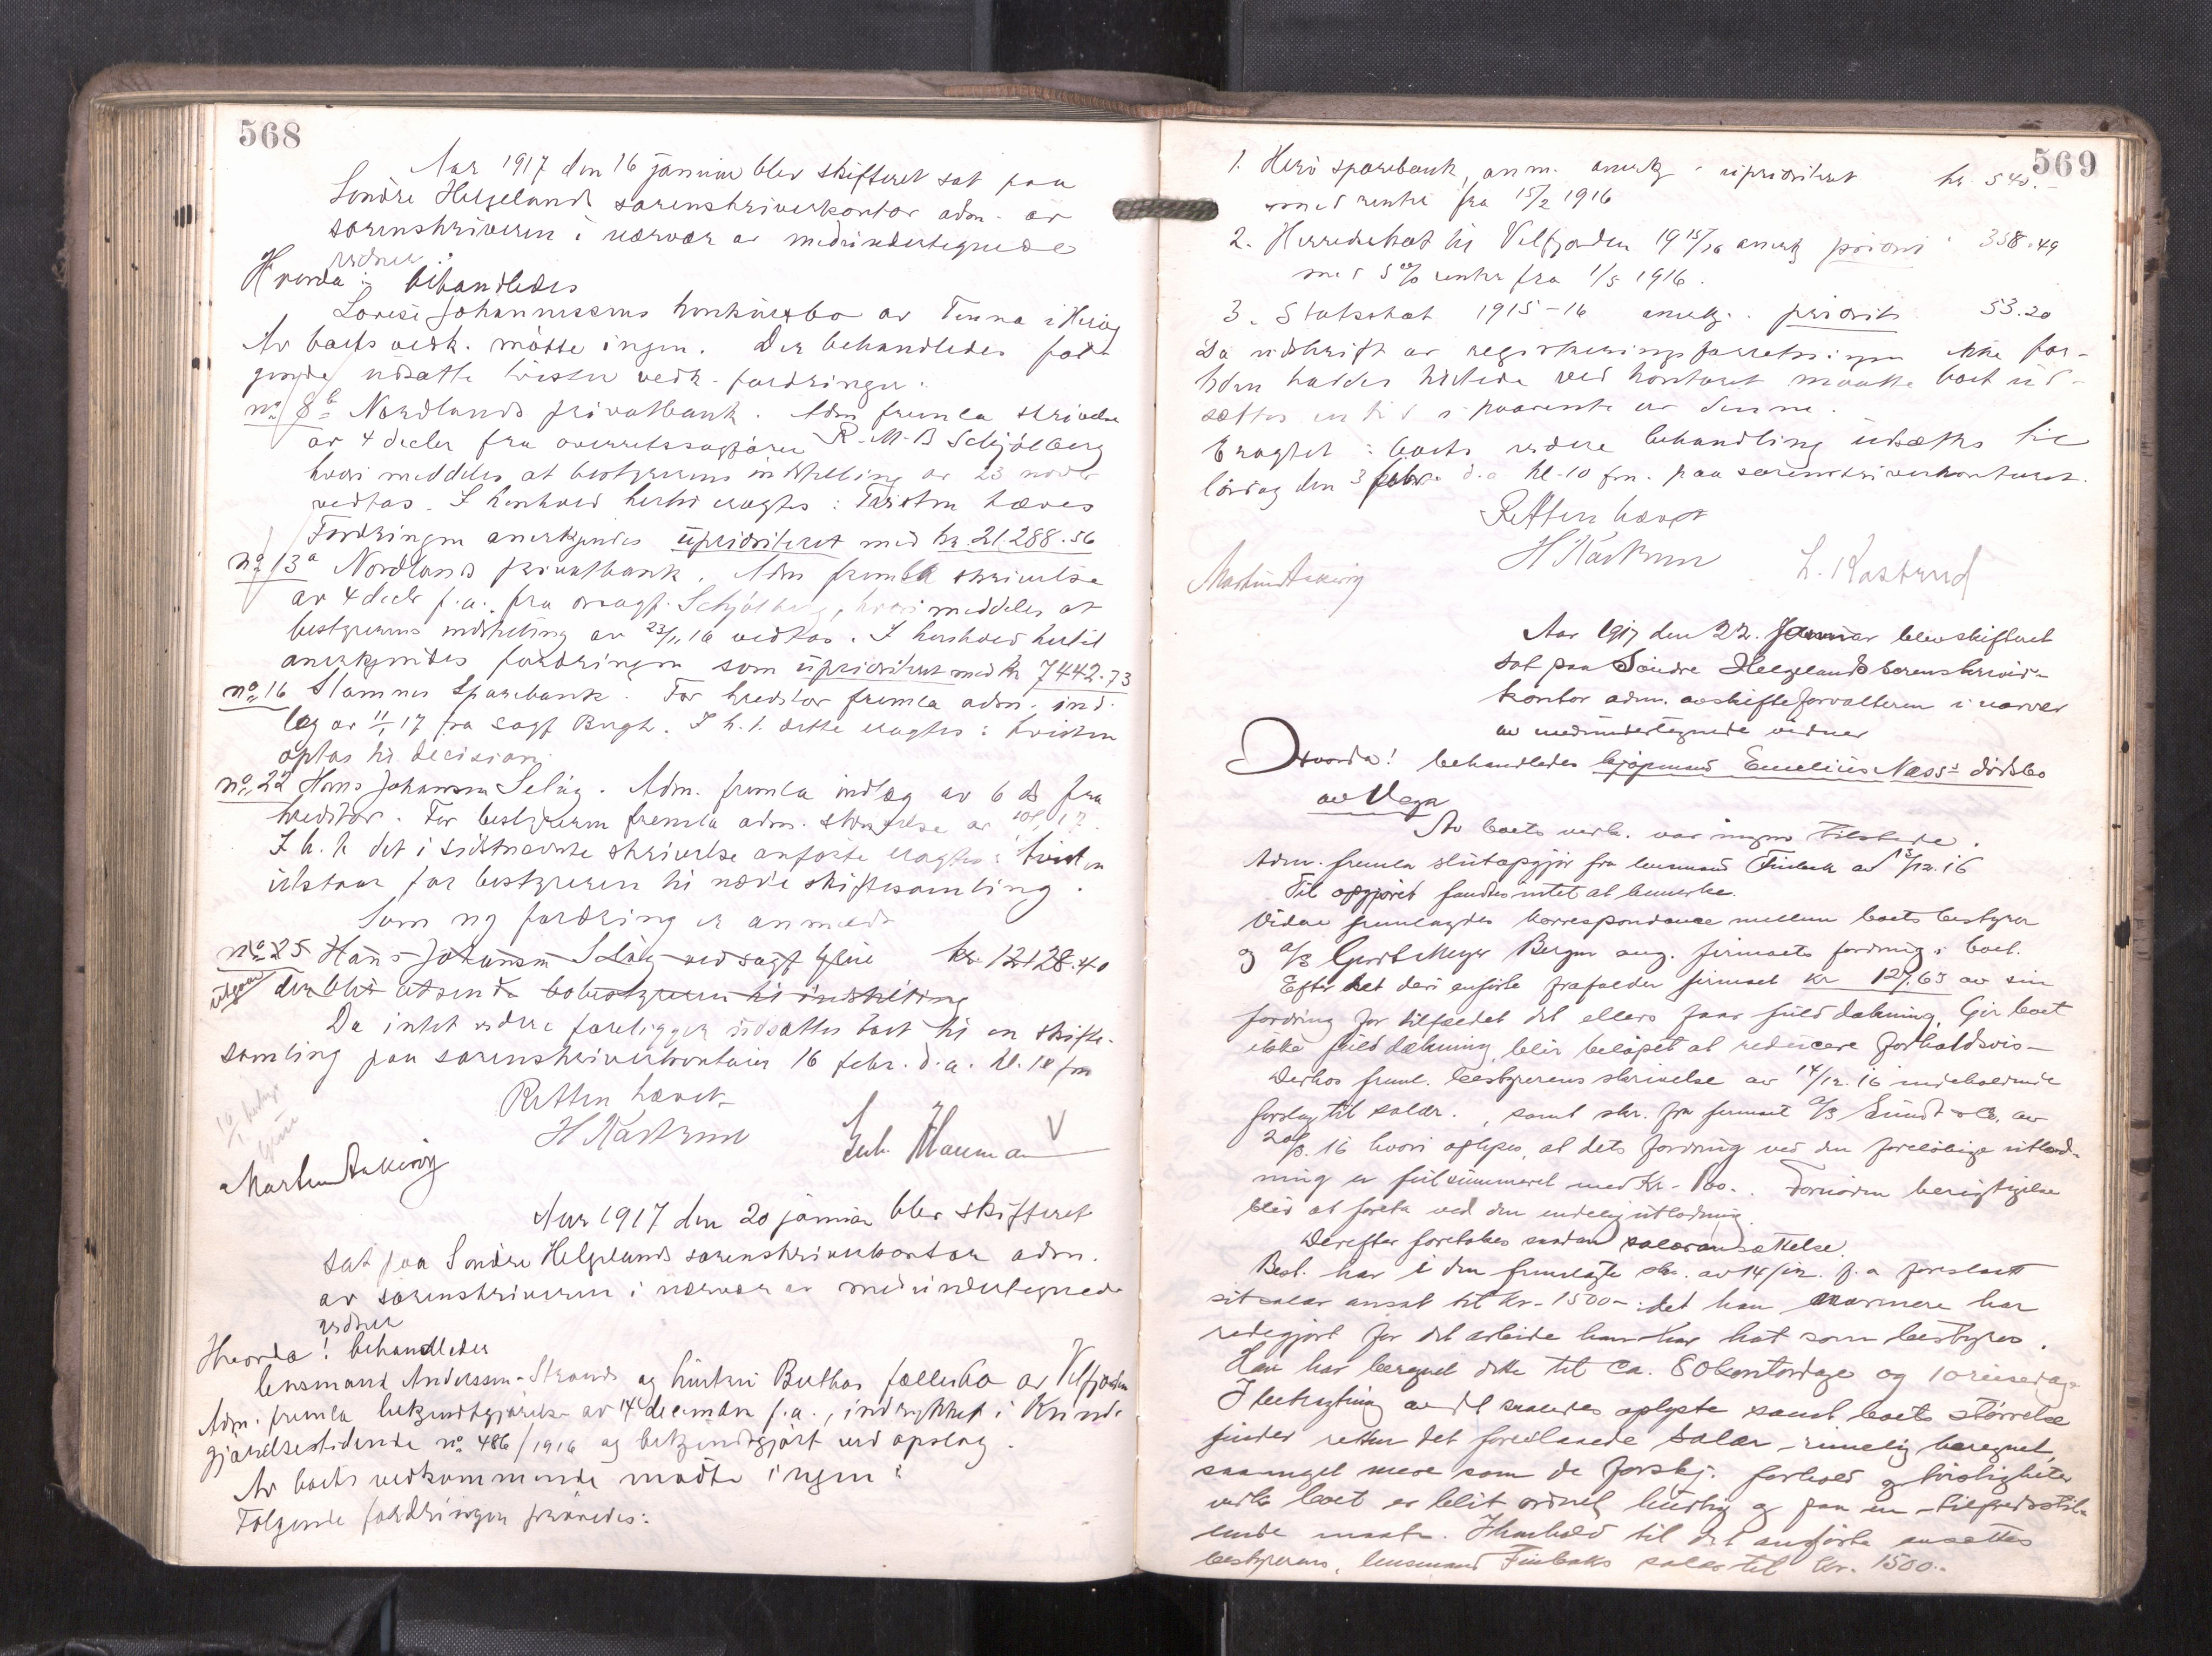 568
Aar 1917 den 16 januar blev skifteret sat paa
Søndre Helgelands sorenskriverkontor adm. av
sorenskriveren i nærvær av medundertegnede
vidner.
Hvorda: behandledes
Lovise Johannessens konkursbo av Tenna i Herøy
Av boets vedk. møtte ingen. Der behandledes føl-
gende utsatte tvister vedk. fordringer:
no 8b Nordlands privatbank. Adm fremla skrivelse
av 4 decbr fra overretssagfører R. M. B Schjølberg
hvori meddeles at bestyrerens indstilling av 23 novbr
vedtas. I henhold hertil eragtes: Tvisten hæves
Fordringen anerkjendes uprioriteret med kr. 21,288.56
no 13a Nordlands privatbank. Adm fremla skrivelse
av 4 decbr f.a. fra orsagf. Schjølberg, hvori meddeles at
bestyrerens indstilling av 23/11 16 vedtas. I henhold hertil
anerkjendes fordringen som uprioritert med kr 7442.73
no 16 Stamnes Sparebank. For kreditor fremla adm. ind-
læg av 11/1 17 fra sagf Bugh. I h. t. dette eragtes: tvisten
optas til decision.
no 22 Hans Johansen Seløy. Adm. fremla indlæg av 6 ds fra
kreditor. For bestyreren fremla adm. skrivelse av 10/1 17.
I h. t. det i sidstnævnte skrivelse anførte eragtes: tvisten
utstaar for bestyreren til næste skiftesamling.
Som ny fordring er anmeldt
no 25 Hans Johansen Seløy ved sagf Gløie kr 12128.40
utgaar der blir utsendt bobestyreren til indstilling
Da intet videre foreligger utsættes boet til en skifte-
samling paa sorenskriverkontoret 16 febr. d.a. kl. 10 fm
Retten hævet
H Kastrud
Joh. Hauman
Martin Aakerøy
Aar 1917 den 20 januar blev skifteret
sat paa Søndre Helgelands sorenskriverkontor adm.
av sorenskriveren i nærvær av medundertegnede
vidner
Hvorda! behandledes
lensmand Anderssen-Strands og hustru Berthas fællesbo av Velfjorden
Adm. fremla bekjendtgjørelse av 14 december f.a., indrykket i Kund-
gjørelsestidende no 486/1916 og bekjendtgjort ved opslag.
Av boets vedkommende møtte ingen:
Følgende fordringer prøvedes:
569
1. Herö sparebank, anm. anerkj. uprioritert kr. 540.-
med renter fra 15/2 1916
2. Herredskat til Velfjorden 1915/16 anerkj priori 358.49
med 5% renter fra 1/5 1916.
3. Statsskat 1915-16 anerkj. priorit 53.20
Da utskrift av registreringsforretningen ikke for-
tiden haddes tilstede ved kontoret maatte boet ut-
sættes en tid i paavente av denne.
Eragtet: boets videre behandling utsættes til
lördag den 3 febr. d.a kl. 10 fm. paa sorenskriverkontoret.
Retten hævet
H Kastrud
L. Kastrud
Martin Aakerøy
Aar 1917 den 22. Januar blev skifteret
sat paa Söndre Helgelands sorenskriver-
kontor adm. av skifteforvalteren i nærvær
av medundertegnede vidner
Hvorda! behandledes kjøpmand Emelius Næss's dödsbo
av Vega
Av boets vedk. var ingen tilstede.
Adm. fremla slutopgjör fra lensmand Finbak av 13/12.16
Til opgjöret fandtes intet at bemerke.
Videre fremlagdes korrespondance mellem boets bestyrer
og A/S Gerdt Meyer Bergen ang. firmaets fordring i boet.
Efter det deri anførte frafalder firmaet kr 127,65 av sin
fordring for tilfældet det ellers faar fuld dækning. Gir boet
ikke fuld dækning, blir beløpet at reducere forholdsvis-
Derhos freml. bestyrerens skrivelse av 14/12.16 indeholdende
forslag til salær., samt skr. fra firmaet A/S Sundt & Co. av
20/3.16 hvori oplyses, at dets fordring ved den foreløbige utlod-
ning er feilsummeret med Kr. 100.. Fornøden berigtigelse
blir at foreta ved den endelig utlodning.
Derefter foretokes saadan salæransættelse.
Best. har i den fremlagte skr. av 14/12. f.a foreslaat
sit salær ansat til kr. 1500-: det han nærmere har
redegjort for det arbeide han har hat som bestyrer.
Han har beregnet dette til ca. 80 kontordage og 10 reisedage
I betragtning av det saaledes oplyste samt boets størrelse
finder retten det foreslaaede salær rimelig beregnet,
saameget mere som de forskj. forhold og tvistigheter
vedk boet er blit ordnet hurtig og paa en tilfredsstil-
lende maate. I henhold til det anførte ansættes
bestyrerens, lensmand Finbaks salær til kr. 1500.-